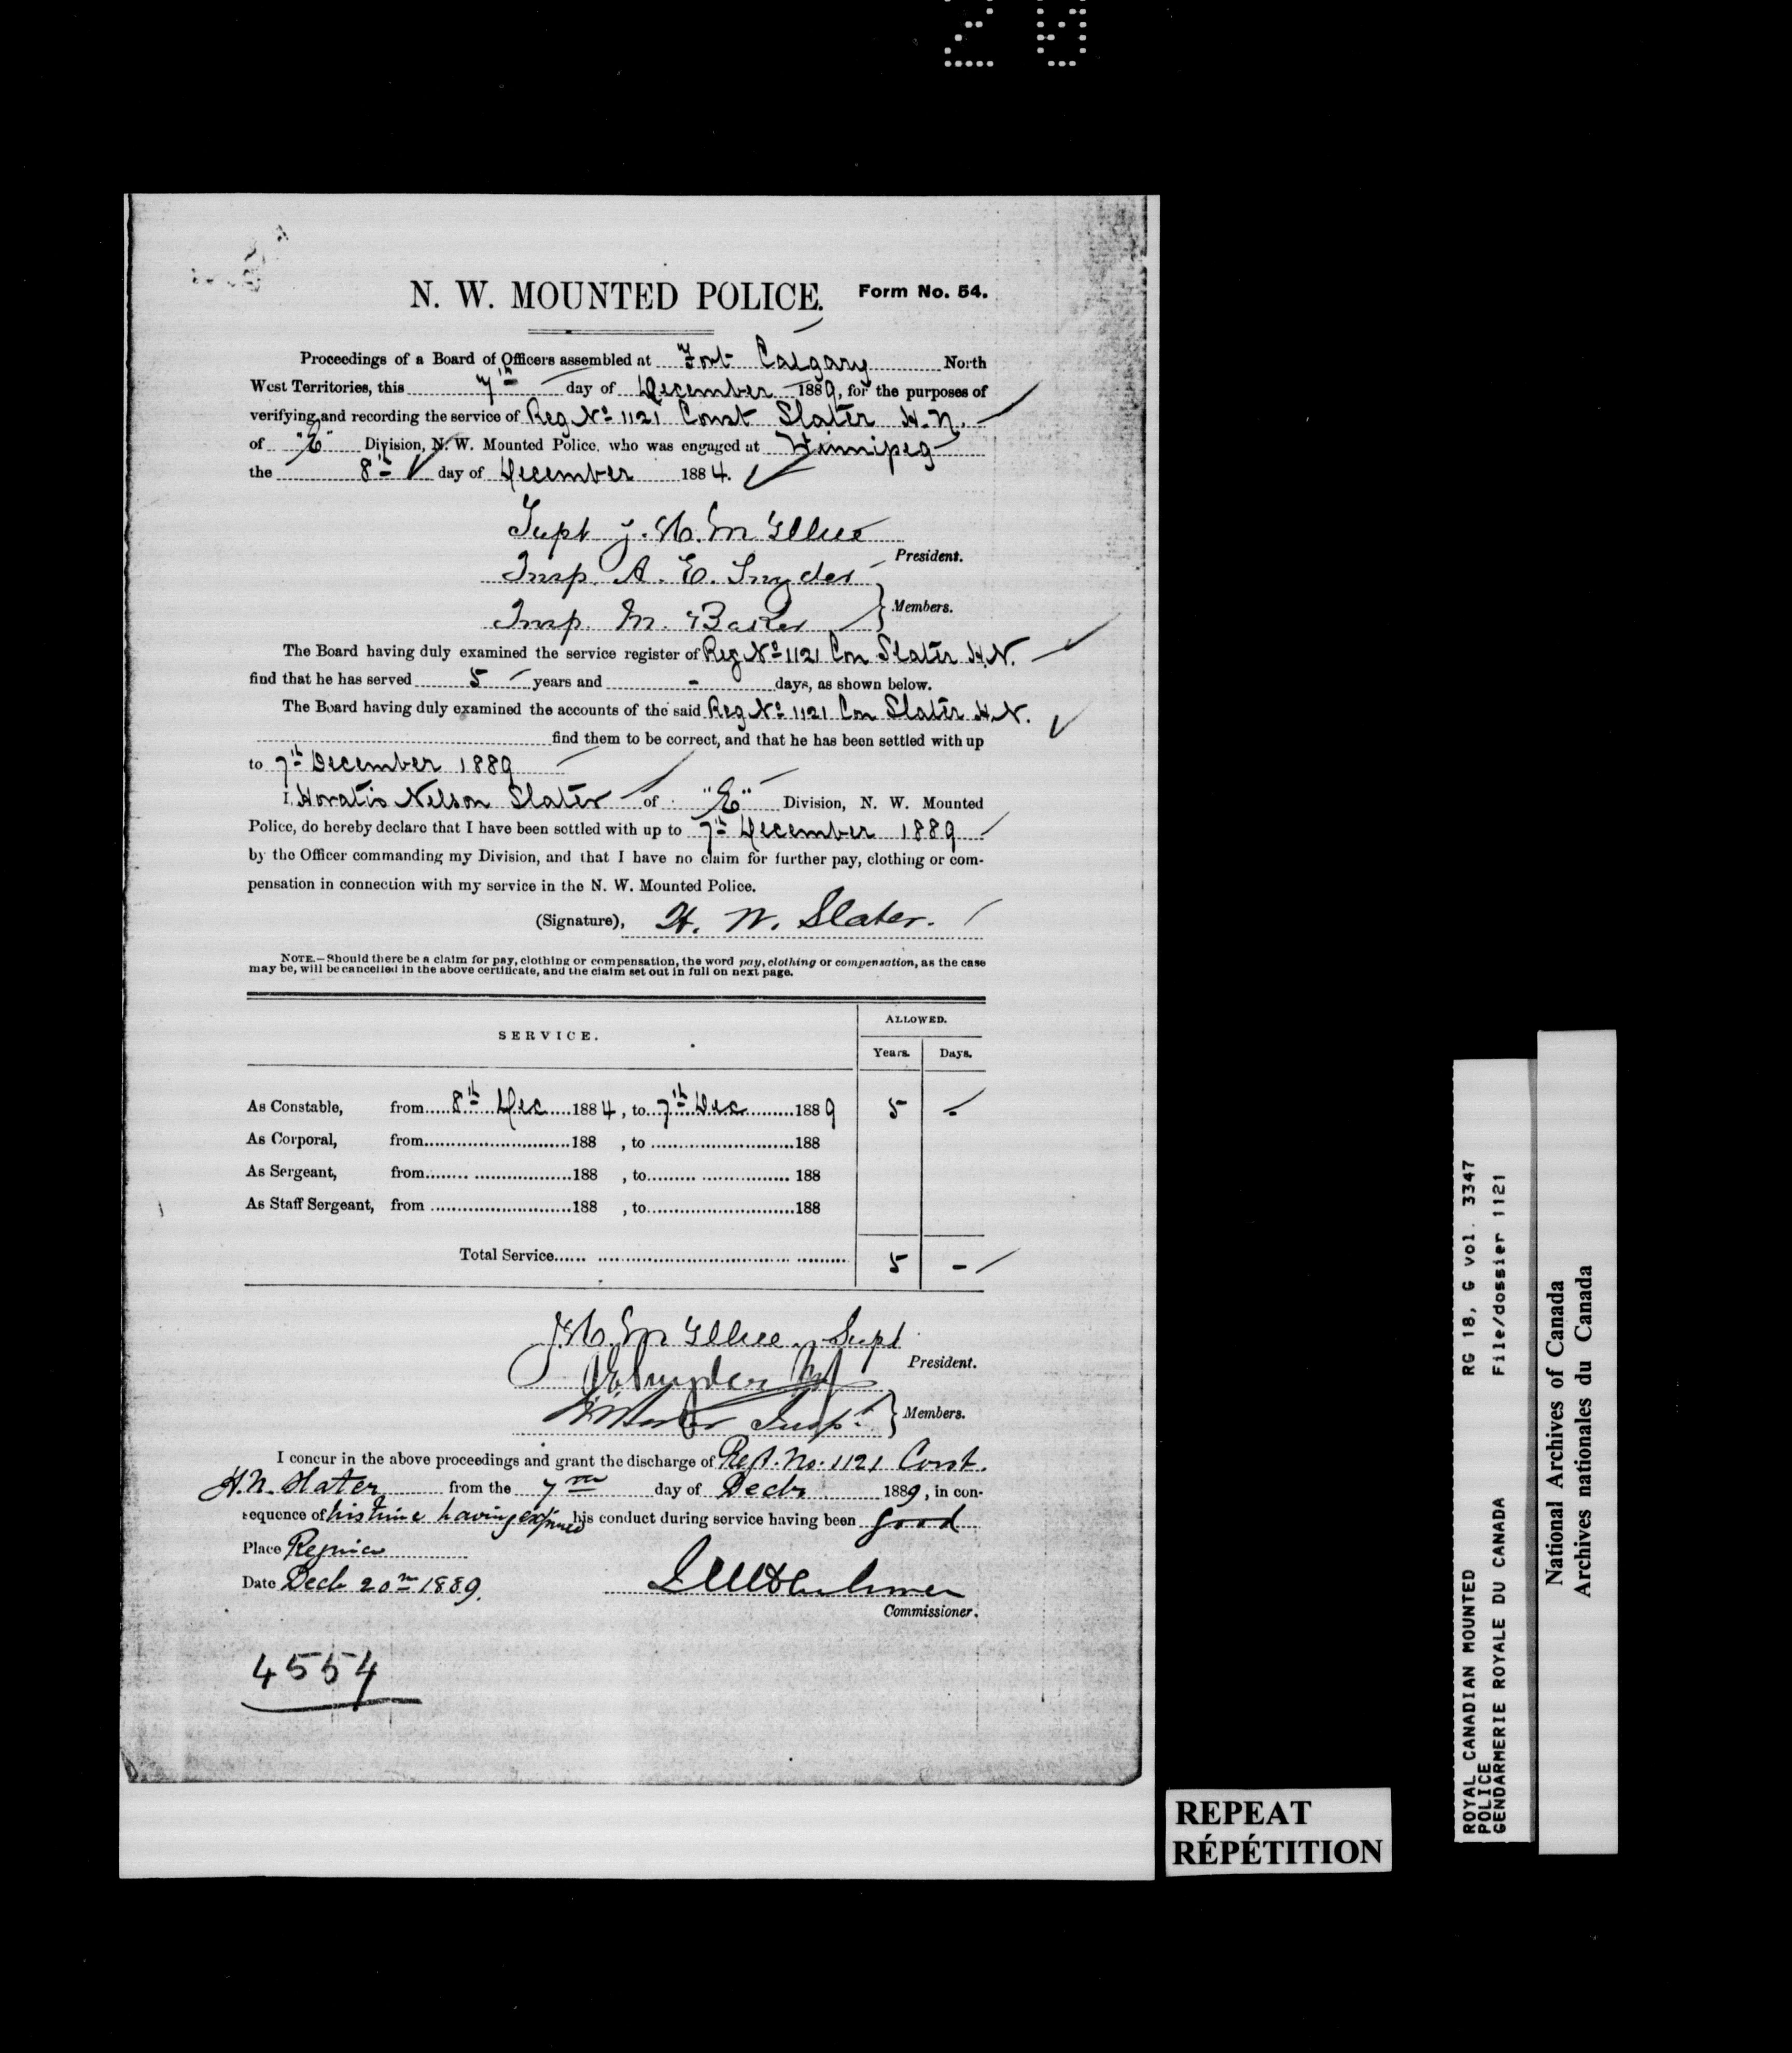 20
N. W. MOUNTED POLICE. Form No. 54.
Proceedings of a Board of Officers assembled at Fort Calgary North
West Territories, this 7th day of December 1889, for the purposes of
verifying and recording the service of Reg No 1121 Const Slater H. N.
of "E" Division, N. W. Mounted Police, who was engaged at Winnipeg
the 8th day of December 1884.
Supt J. H. McIllree
President.
Insp. A. E. Snyder
Insp. M. Baker
Members.
The Board having duly examined the service register of Reg No 1121 Con Slater H.N.
find that he has served 5 years and - days, as shown below.
The Board having duly examined the accounts of the said Reg No 1121 Con Slater H.N.
find them to be correct, and that he has been settled with up
to 7th December 1889
I, Horatio Nelson Slater of "E" Division, N. W. Mounted
Police, do hereby declare that I have been settled with up to 7th December 1889
by the Officer commanding my Division, and that I have no claim for further pay, clothing or com-
pensation in connection with my service in the N. W. Mounted Police.
(Signature), H. N. Slater.
NOTE.—Should there be a claim for pay, clothing or compensation, the word pay, clothing or compensation, as the case
may be, will be cancelled in the above certificate, and the claim set out in full on next page.
SERVICE. ALLOWED.
Years. Days.
As Constable, from 8th Dec 1884, to 7th Dec 1889 5 -
As Corporal, from 188 , to 188
As Sergeant, from 188 , to 188
As Staff Sergeant, from 188 , to 188
Total Service 5 -
J H McIllree, Supt
President.
AESnyder
Baker Inspr
Members.
I concur in the above proceedings and grant the discharge of Regt. No. 1121 Const.
H. N. Slater from the 7th day of Decbr 1889, in con-
sequence of his time having expired his conduct during service having been good
Place Regina
Date Decbr 20th 1889.
Commissioner.
4554
REPEAT
RÉPÉTITION
ROYAL CANADIAN MOUNTED RG 18, G vol. 3347
POLICE
GENDARMERIE ROYALE DU CANADA File/dossier 1121
National Archives of Canada
Archives nationales du Canada